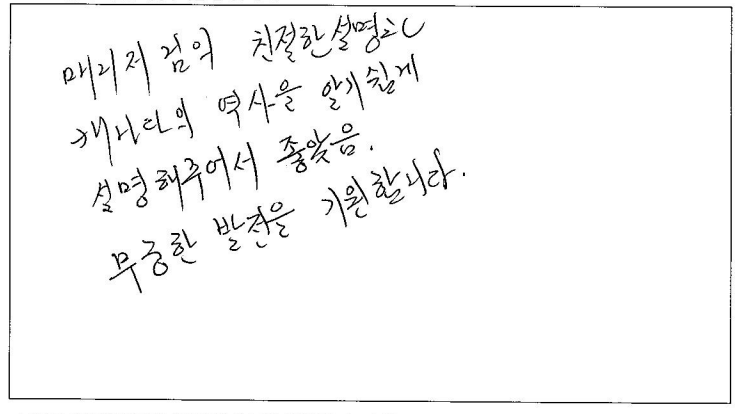 매니저 님의 친절한 설명과
캐나다의 역사를 알기쉽게
설명해주어서 좋았음.
무궁한 발전을 기원합니다.